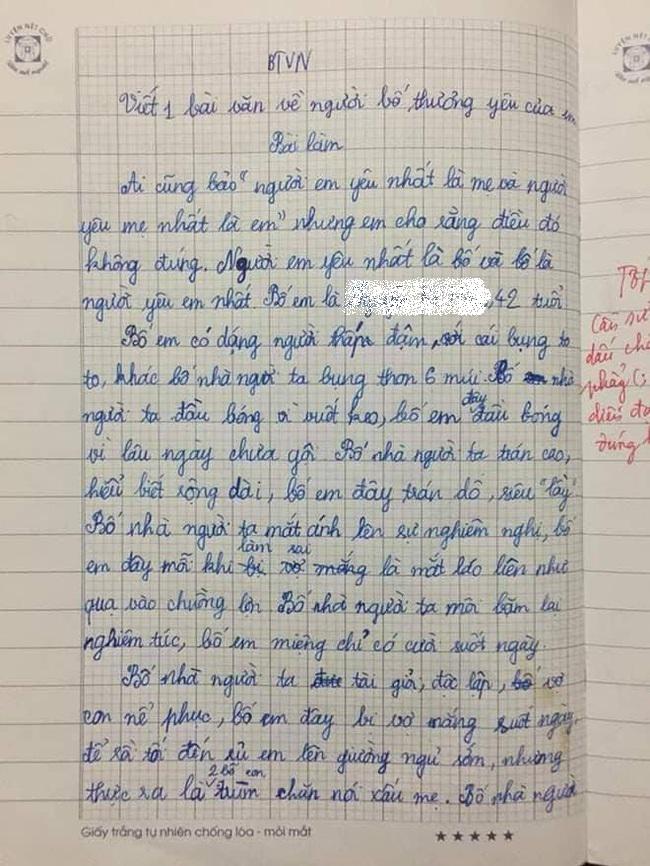 LUYỆN NÉT CHỮ
BTVN
Viết 1 bài văn về người bố thương yêu của em
Bài làm
Ai cũng bảo "người em yêu nhất là mẹ và người
yêu mẹ nhất là em" nhưng em cho rằng điều đó
không đúng. Người em yêu nhất là bố và bố là
người yêu em nhất. Bố em là , 42 tuổi
Bố em có dáng người thấp đậm, với cái bụng to
to, khác bố nhà người ta bụng thon 6 múi. Bố nhà
người ta đầu bóng vì vuốt keo, bố em đây đầu bóng
vì lâu ngày chưa gội. Bố nhà người ta trán cao,
hiểu biết rộng dài, bố em đây trán dô, siêu "lầy"
Bố nhà người ta mắt ánh lên sự nghiêm nghị, bố
em đây mỗi khi làm sai là mắt láo liên như
qua vào chuồng lợn Bố nhà người ta môi bặm lại
nghiêm túc, bố em miệng chỉ có cười suốt ngày.
Bố nhà người ta tài giỏi, độc lập, vợ
con nể phục, bố em đây bị vợ mắng suốt ngày,
để rồi tối đến rủ em lên giường ngủ sớm, nhưng
thực ra là 2 bố con trùm chăn nói xấu mẹ. Bố nhà người
Giấy trắng tự nhiên chống lóa - mỏi mắt
★★★★★
Cần sử
dấu
phẩy (;